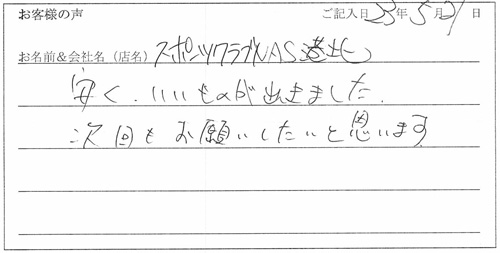 お客様の声 ご記入日 23年 5月 21日
お名前&会社名(店名) スポーツクラブNAS港北
安く、いいものが出きました.
次回もお願いしたいと思います